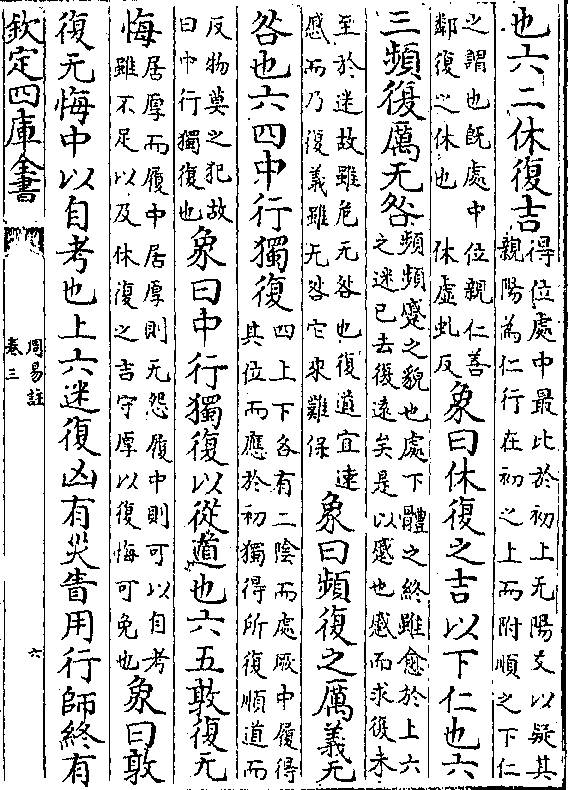 也六二休復吉得位處中最比於初上无陽爻以疑其
親陽為仁行在初之上而附順之下仁
之謂也既處中位親仁善
鄰復之休也 休虛虬反
象曰休復之吉以下仁也六
三頻復厲无咎頻頻蹙之貌也處下體之終雖愈於上六
之迷已去復遠矣是以慼也慼而求復未
至於迷故雖危无咎也復道宜速
慼而乃復義雖无咎它來難保
象曰頻復之厲義无
咎也六四中行獨復四上下各有二陰而處厥中履得
其位而應於初獨得所復順道而
反物莫之犯故
曰中行獨復也
象曰中行獨復以從道也六五敦復无
悔居厚而履中居厚則无怨履中則可以自考
雖不足以及休復之吉守厚以復悔可免也
象曰敦
復无悔中以自考也上六迷復凶有災眚用行師終有
欽定四庫全書
周易註
卷三
六